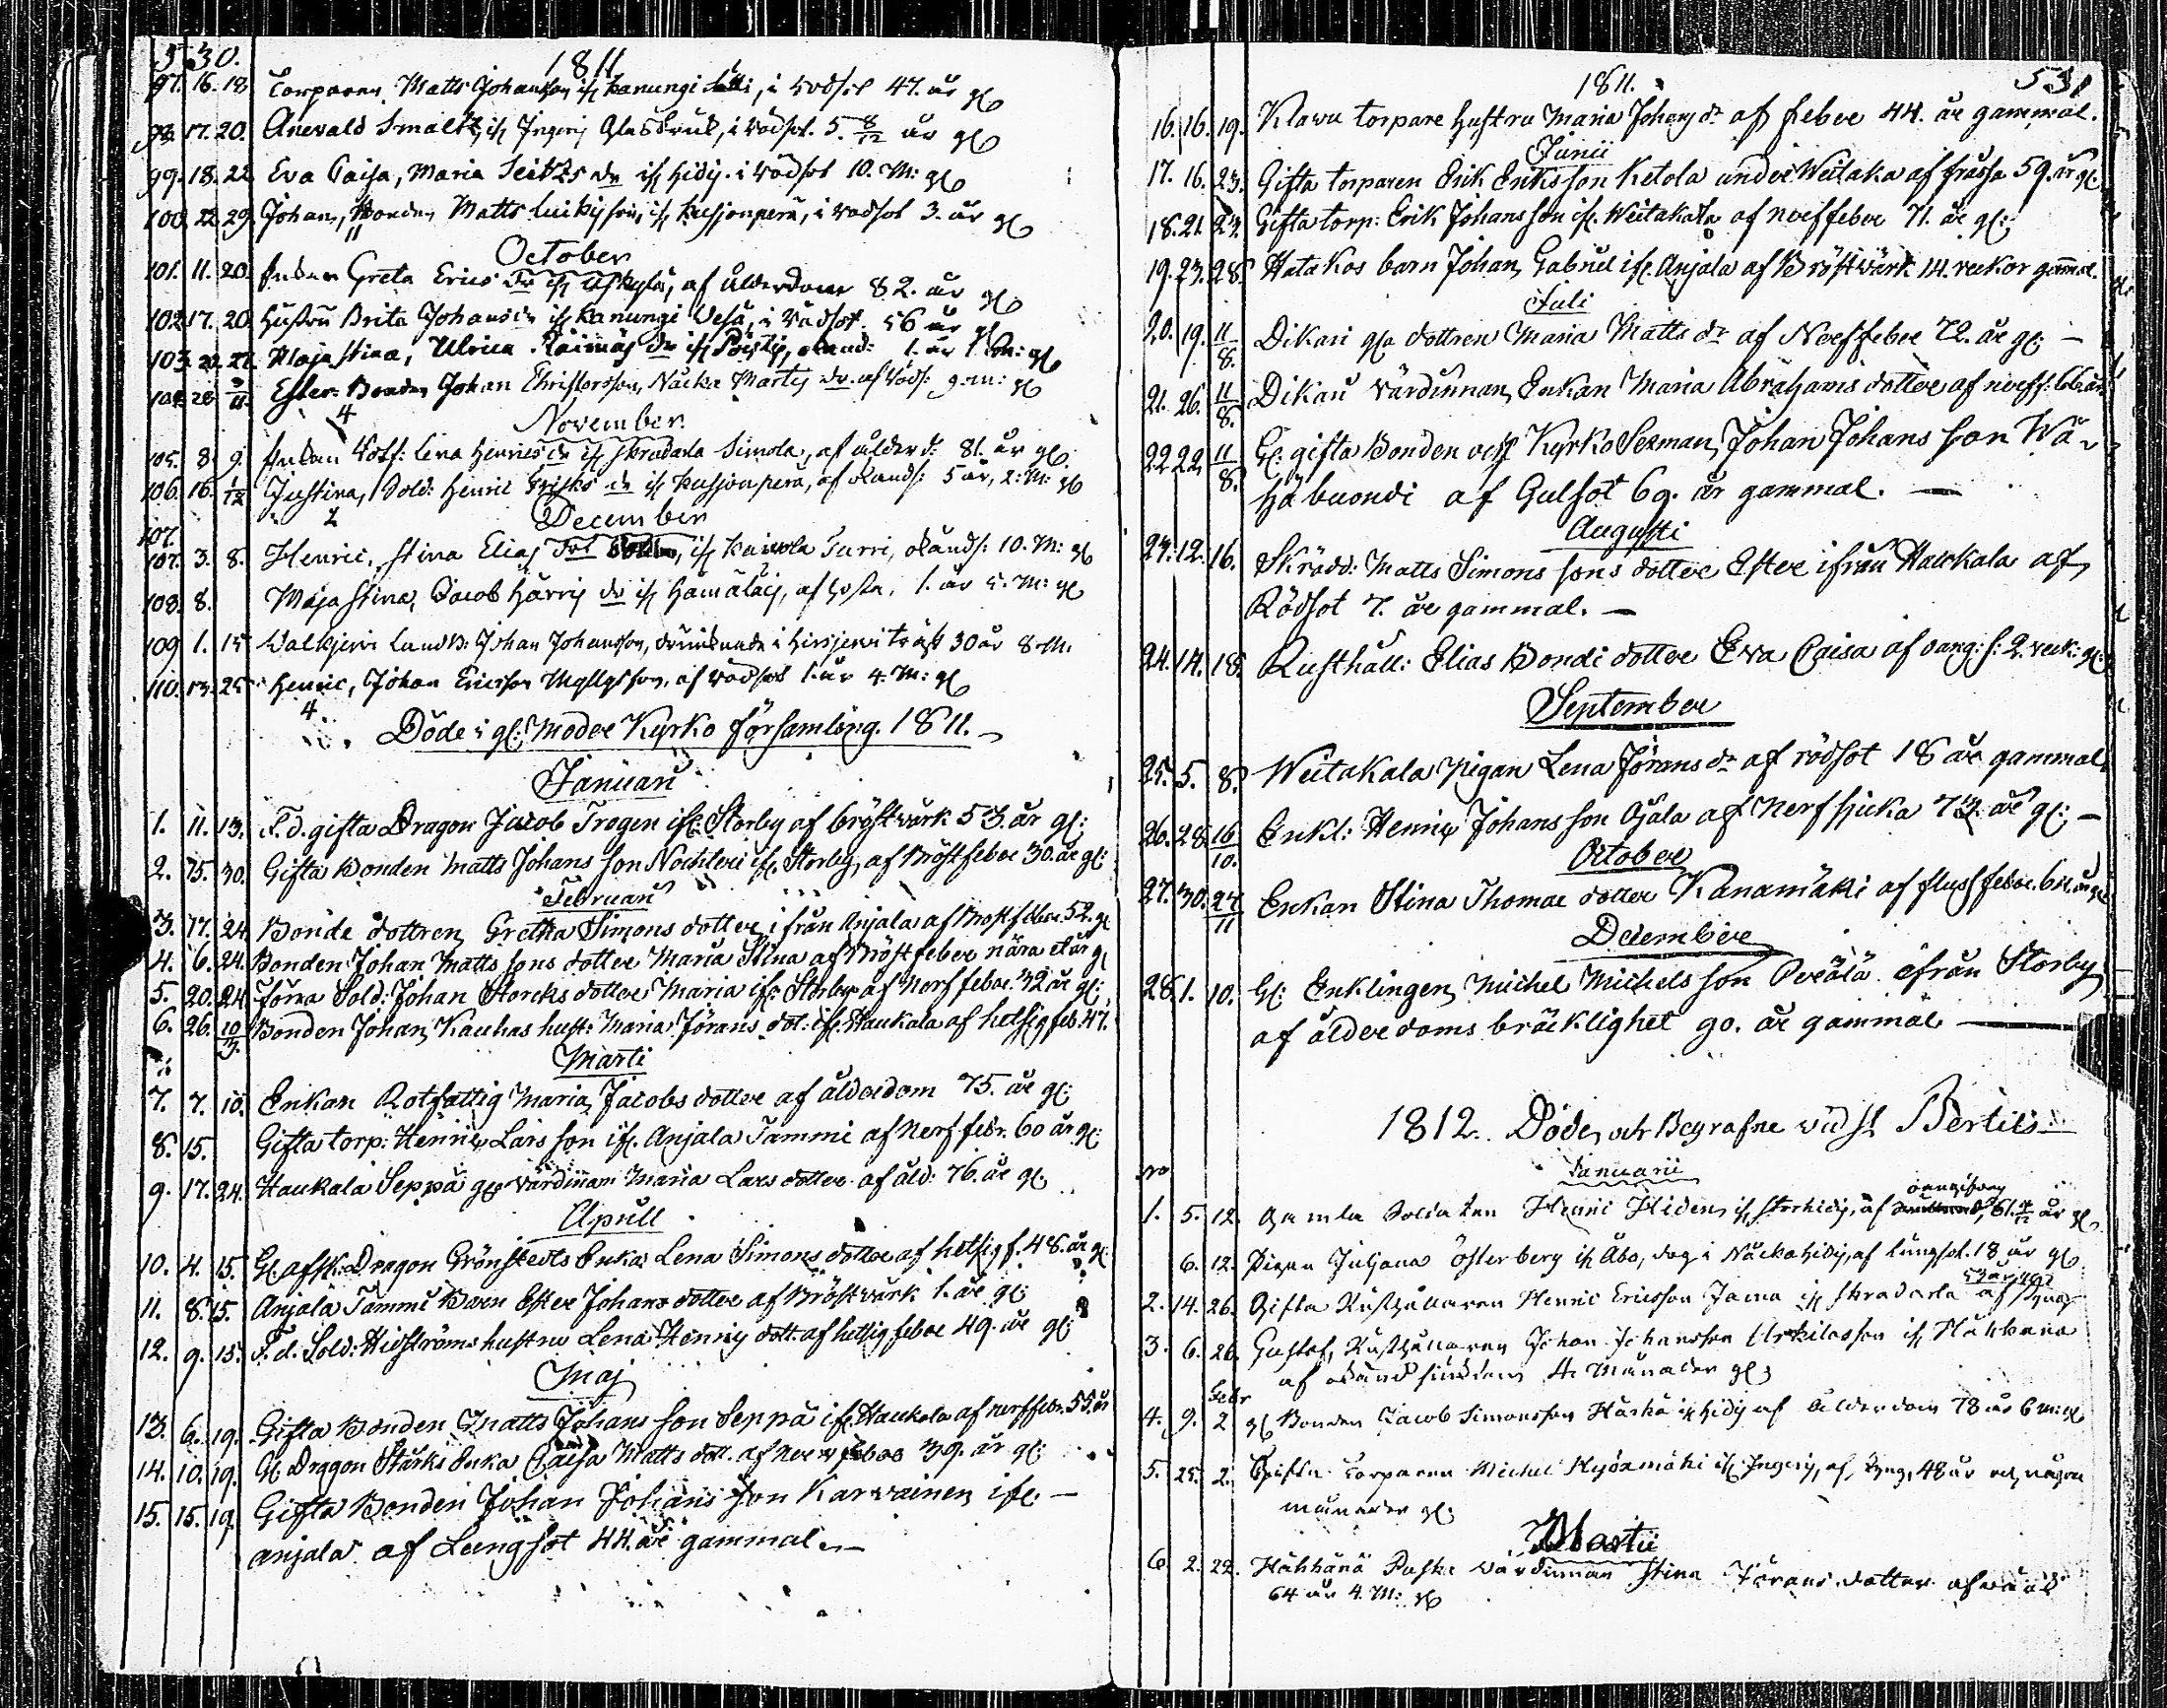 530.
1811
97. 16. 18 Torparen Matts Johansson if Kanungi, i rödsot 47. år gl
98. 17. 20. Anevald Smaltz, if Ingerij Glasbruk, i rödsot. 5. 8/12 år gl
99. 18. 22 Eva Caisa, Maria Seitzs dr if Hidij. i rödsot 10. M: gl
100. 22. 29. Johan, Bonden Matts son, if Kusjonperä, i rödsot 3. år gl
11
October
101. 11. 20. Enkan Greta Erics dr if, af ålderdom 82. år gl
102. 17. 20. Hustru Brita Johans dr if Kanungi Vesa, i rödsot. 56 år gl
103. 22. 27. Maja Stina, Ulrica dr if 1. år gl
104. 28 3/11. Ester. Bonden Johan Christersson, Näcka Martij dr. af röds: 9. m: gl
4
November.
105. 8. 9. Enkan Rotf: Lena Henrics dr if Skradarla Simola, af ålderd: 81. år gl.
106. 16. 1/12 Justina, Sold: Henric dr if Kusjonperä, af 5 år, 2: M: gl
2
December
107.
107. 3. 8. Henric, Stina Elias dr if Turri, 10. M: gl
108. 8. Maja Stina, Jacob Harrij dr if Hämäläij, af hosta, 1. år 5. M: gl
109 1. 15 Walkjerwi Landb: Johan Johansson, drunknade i Hirsjerwi träsk 30 år 8. M.
110. 13. 25 Henric, Johan Ericsson Myllys son. af rödsot 1. år 4. M: gl
4.
Döde i gl: Moder Kyrko församling. 1811.
Januari
1. 11. 13. F. d. gifta Dragon Jacob Trogen ifr: Storby af bröstvärk 53. år gl:
2. 15. 30. Gifta Bonden Matts Johans son Nochteri ifr. Storby, af Bröst feber 30. år gl:
Februari
3. 17. 24. Bonde dottren Gretha Simons dotter ifrån Anjala af Bröstfeber. 52. gl
4. 6. 24. Bonden Johan Matts sons dotter Maria Stina af Bröst feber nära et år gl
5. 20. 24. förra Sold: Johan Storcks dotter Maria ifr: Storby af Nerf feber. 32 år gl:
6. 26. 10/3. Bonden Johan Kauhas hust: Maria Jörans dot: ifr. Haukala af hetsig feb. 47.
Marti
7. 7. 10. Enkan Rotfattig Maria Jacobs dotter af ålderdom 75. år gl:
8. 15. Gifta torp: Henric Lars son ifr. Anjala Tammi af Nerf febr. 60 år gl:
9. 17. 24. Haukala Seppä gl: Värdinnan Maria Lars dotter af åld: 76. år gl.
Aprill
10. 4. 15. Gl. afsk: Dragon Grönstedts Enka Lena Simons dotter af hetsig f. 48. år gl:
11. 8. 15. Anjala Tammi Barn Ester Johans dotter af Bröstvärk 1. år gl:
12. 9. 15. F. d. Sold: Hidströms hustru Lena Henrics dott. af hetsig feber 49. år gl:
Maj
13. 6. 19. Gifta Bonden Matts Johans son Seppä ifr. Haukala af nerf febr. 55. år
14. 10. 19. Gl. Dragon Starks Enka Caisa Matts dott. af Nerf feber 39. år gl:
15. 15. 19. Gifta Bonden Johan Johans son Karvainen ifr. –
Anjala af Lungsot 44. år gammal. –
1811.
531
16. 16. 19. Klawu torpare hustru Maria Johans dr af feber 44. år gammal.
Junii
17. 16. 23. Gifta torparen Erik Eriksson Ketola under Weitaka af frässa 59. år gl:
18. 21. 23. Gifta torp: Erik Johansson ifr. Weitakala af nerffeber 71. år gl:
19. 23. 28. Hatakos barn Johan Gabriel ifr. Anjala af Bröstvärk 14. veckor gammal.
Juli
20. 19. 11/8. Dikari gla dottren Maria Matts dr af Nerffeber 72. år gl: –
21. 26. 11/8. Dikari Värdinnan, Enkan Maria Abrahams dotter af nerff: 66 år
22 22 11/8. Gl: gifta Bonden och KyrkoSexman Johan Johans son Wä-
hä buondi af Gulsot 69. år gammal. –
Augusti
23. 12. 16. Skrädd: Matts Simons sons dotter Ester ifrån Haukala af
Rödsot 7. år gammal. –
24. 14. 18. Rusthåll: Elias Bondi dotter Eva Caisa af oang: s: 2. veck: gl:
September
25. 5. 8. Weitakala Pigan Lena Jörans dr af rödsot 18 år gammal.
26. 28. 16/10. Enkl: Henric Johans son Ojala af Nerfsjuka 73. år gl: –
October
27. 30. 24/11 Enkan Stina Thomæ dotter Kanamäki af fluss feber. år gl
December
28. 1. 10. Gl: Enklingen Michel Michels son Overälä ifrån Storby
af ålderdoms bräcklighet 90. år gammal –
1812. Döde och Begrafne vid St Bertils
No Januarii
1. 5. 12. Gamla Soldaten Henric Hiden if Storhidij, af oangifven 61. år gl.
6. 12. Pigan Juljana Österberg if Åbo, dog i Näckahidij, af lungsot. 18 år gl
2. 14. 26. Gifta Rusthållaren Henric Ericsson Jama if Skradarla af
3. 6. 26. Gustaf, Rusthållaren Johan Johansson Arkilasson if
af 4. Månader gl:
Febr
4. 9. 2 gl Bonden Jacob Simonsson if Hidij af ålderdom 78 år 6 m: gl
5. 25. 2. Gifta Torparen Michel Hyöxmäki if Ingerij, af 48 år och några
månader gl:
Martii
6 2. 22. Paske Värdinnan Stina Jörans dotter af
64 år 4. M: gl